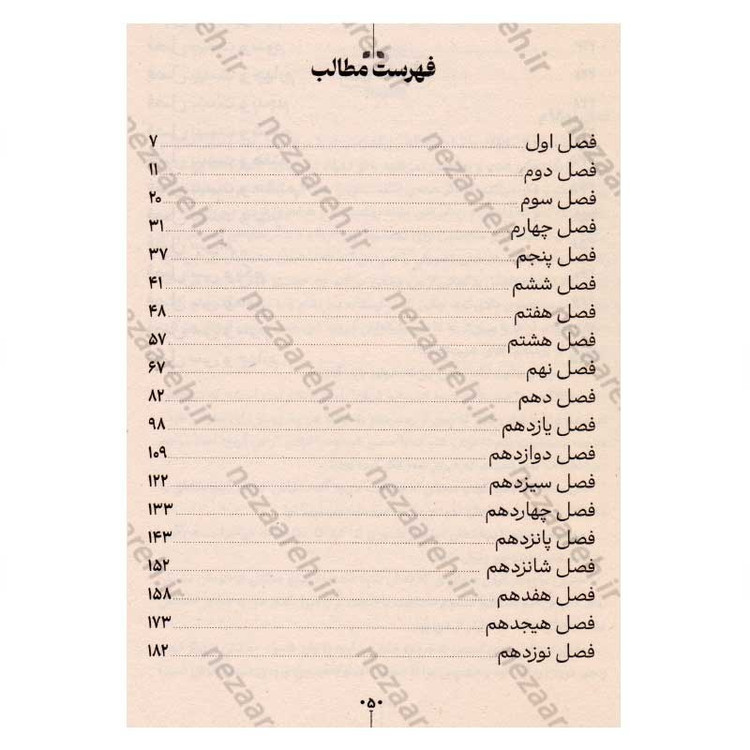 فهرست مطالب
فصل اول ........ ۷
فصل دوم ........ ۱۱
فصل سوم ........ ۲۰
فصل چهارم ........ ۳۱
فصل پنجم ........ ۳۷
فصل ششم ........ ۴۱
فصل هفتم ........ ۴۸
فصل هشتم ........ ۵۷
فصل نهم ........ ۶۷
فصل دهم ........ ۸۲
فصل یازدهم ........ ۹۸
فصل دوازدهم ........ ۱۰۹
فصل سیزدهم ........ ۱۲۲
فصل چهاردهم ........ ۱۳۳
فصل پانزدهم ........ ۱۴۳
فصل شانزدهم ........ ۱۵۲
فصل هفدهم ........ ۱۵۸
فصل هیجدهم ........ ۱۷۳
فصل نوزدهم ........ ۱۸۲
۰۵۰
nezaareh.ir